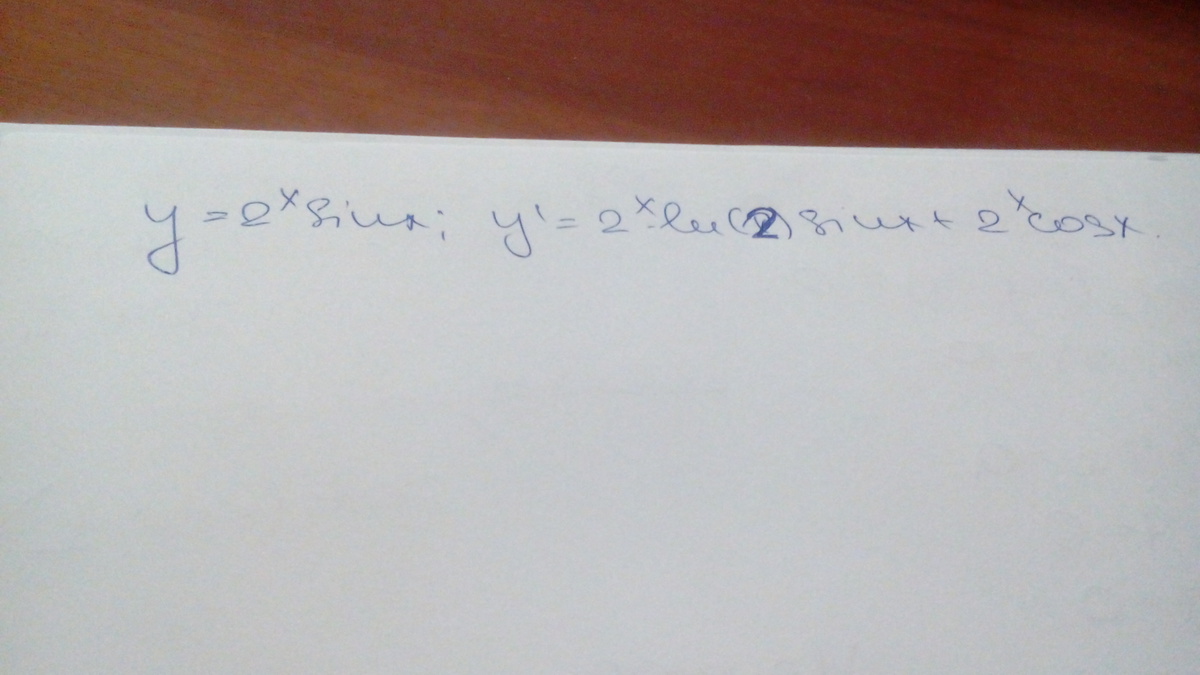 y = 2ˣ sinx; y' = 2ˣ·ln(2) sinx + 2ˣ cosx.